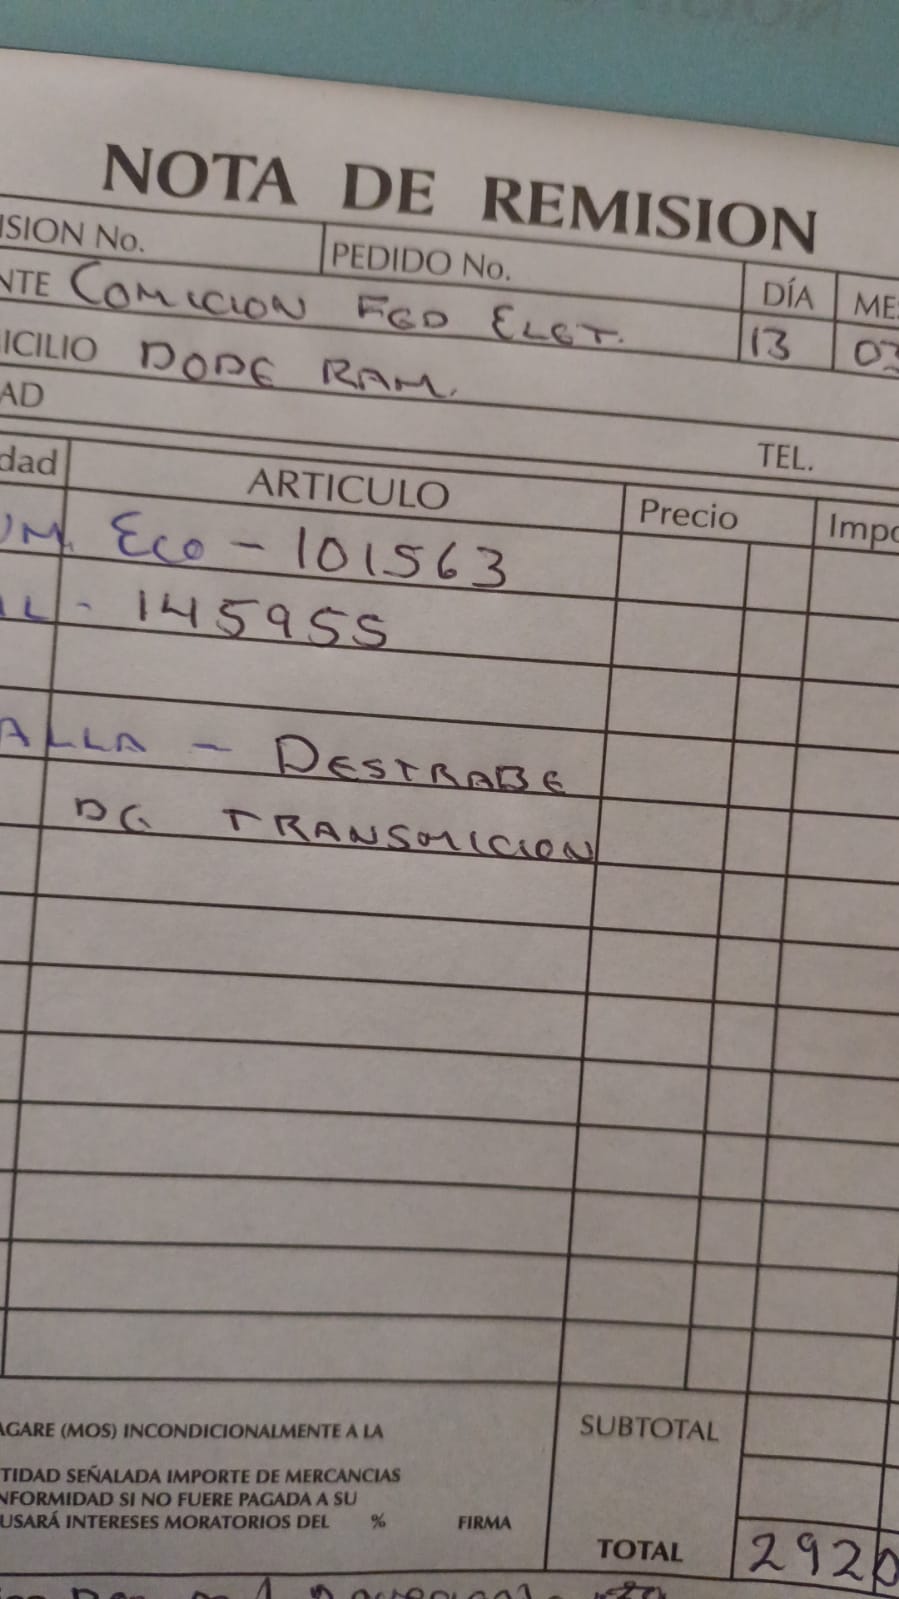 NOTA DE REMISION
ISION No. PEDIDO No.
DÍA
NTE COMICION FED ELET. 13 03
ICILIO DODE RAM.
AD
TEL.
dad ARTICULO Precio Impo
UM. ECO - 101563
IL - 145955
ALLA - DESTRABE
DE TRANSMICION
AGARE (MOS) INCONDICIONALMENTE A LA
SUBTOTAL
TIDAD SEÑALADA IMPORTE DE MERCANCIAS
NFORMIDAD SI NO FUERE PAGADA A SU
USARÁ INTERESES MORATORIOS DEL % FIRMA
TOTAL 2920